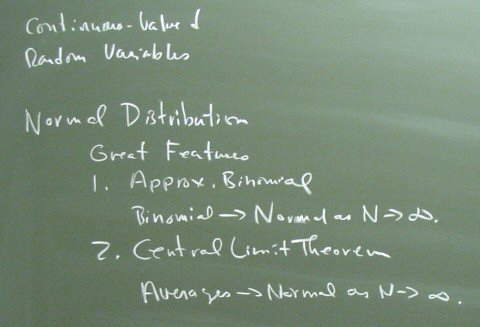 Continuous-Valued
Random Variables
Normal Distribution
Great Features
1. Approx. Binomial
Binomial → Normal as N → ∞.
2. Central Limit Theorem
Averages → Normal as N → ∞.